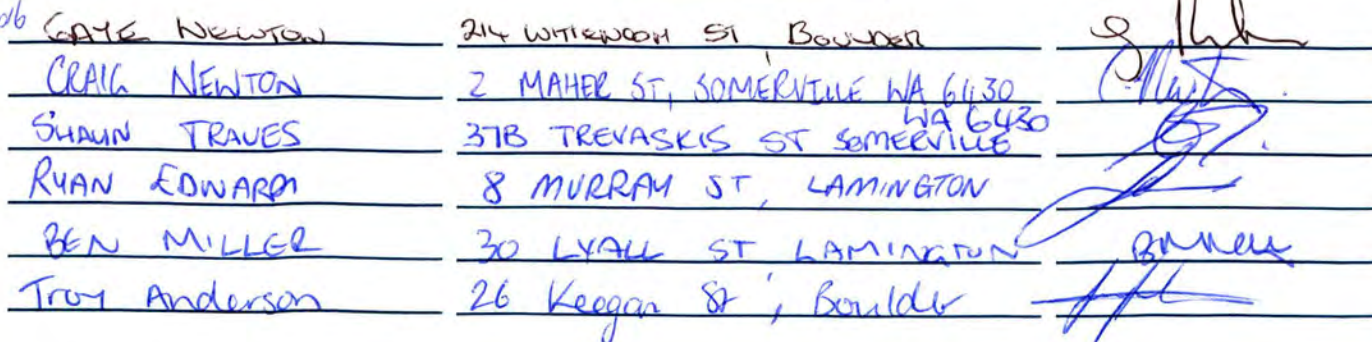 GAYE NEWTON 214 ST BOULDER
CRAIG NEWTON 2 MAHER ST, SOMERVILLE WA 6430
SHAUN TRAVES 37B TREVASKIS ST SOMERVILLE WA 6430
RYAN EDWARDS 8 MURRAY ST, LAMINGTON
BEN MILLER 30 LYALL ST LAMINGTON
Troy Anderson 26 Keegan St, Boulder